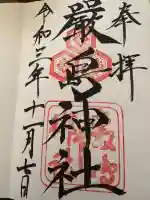 奉拝
厳島神社
令和三年十一月七日